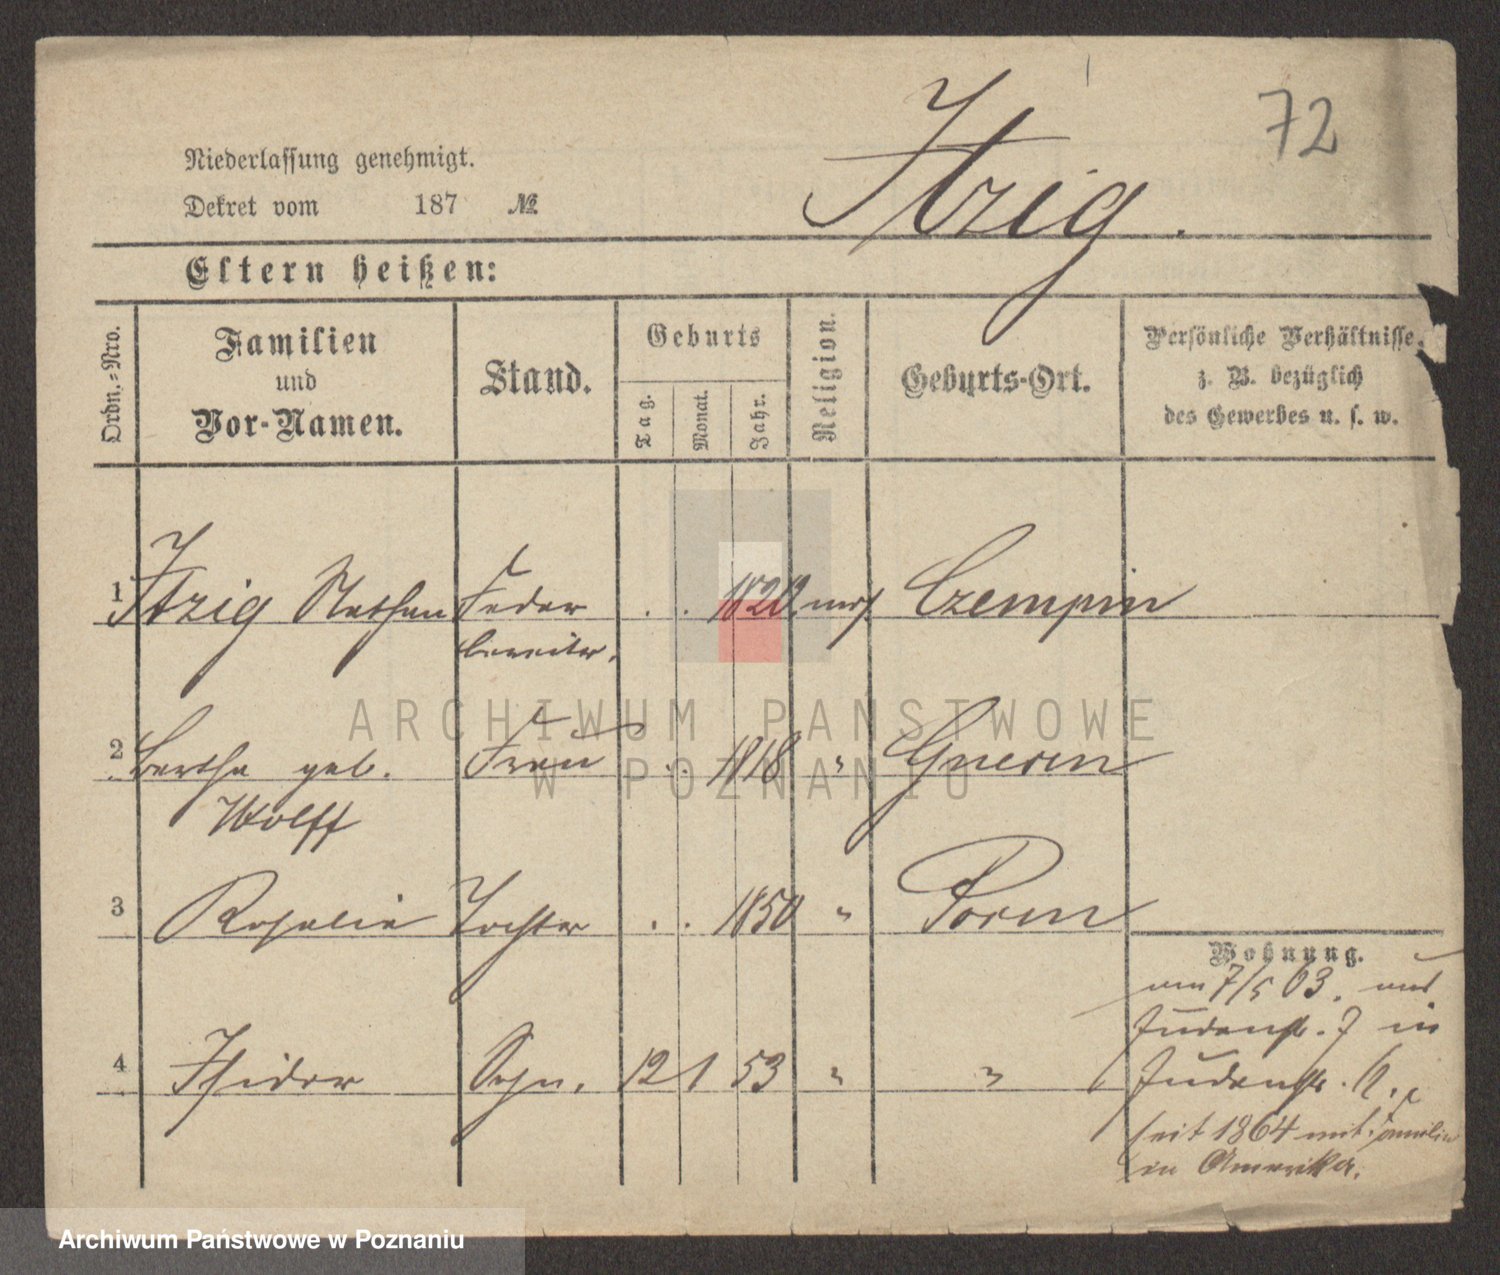 72
Itzig.
Niederlassung genehmigt.
Dekret vom 187 №
Eltern heißen:
Ordn.-Nro.
Familien
und
Vor-Namen.
Stand.
Geburts
Tag.
Monat.
Jahr.
Religion.
Geburts-Ort.
Persönliche Verhältnisse,
z. B. bezüglich
des Gewerbes u. s. w.
1 Itzig Nathan Feder . . 1820. mos. Czempin
bereiter.
2 Bertha geb. Frau . . 1818 " Gnesen
Wolff
3 Rosalie Tochter . . 1850 " Posen
Wohnung.
am 7/5 63. aus
Judenstr. 7 in
4 Isidor Sohn. 12 1 53 " " Judenstr.
seit 1864 mit Familie
in Amerika.
ARCHIWUM PAŃSTWOWE
W POZNANIU
Archiwum Państwowe w Poznaniu